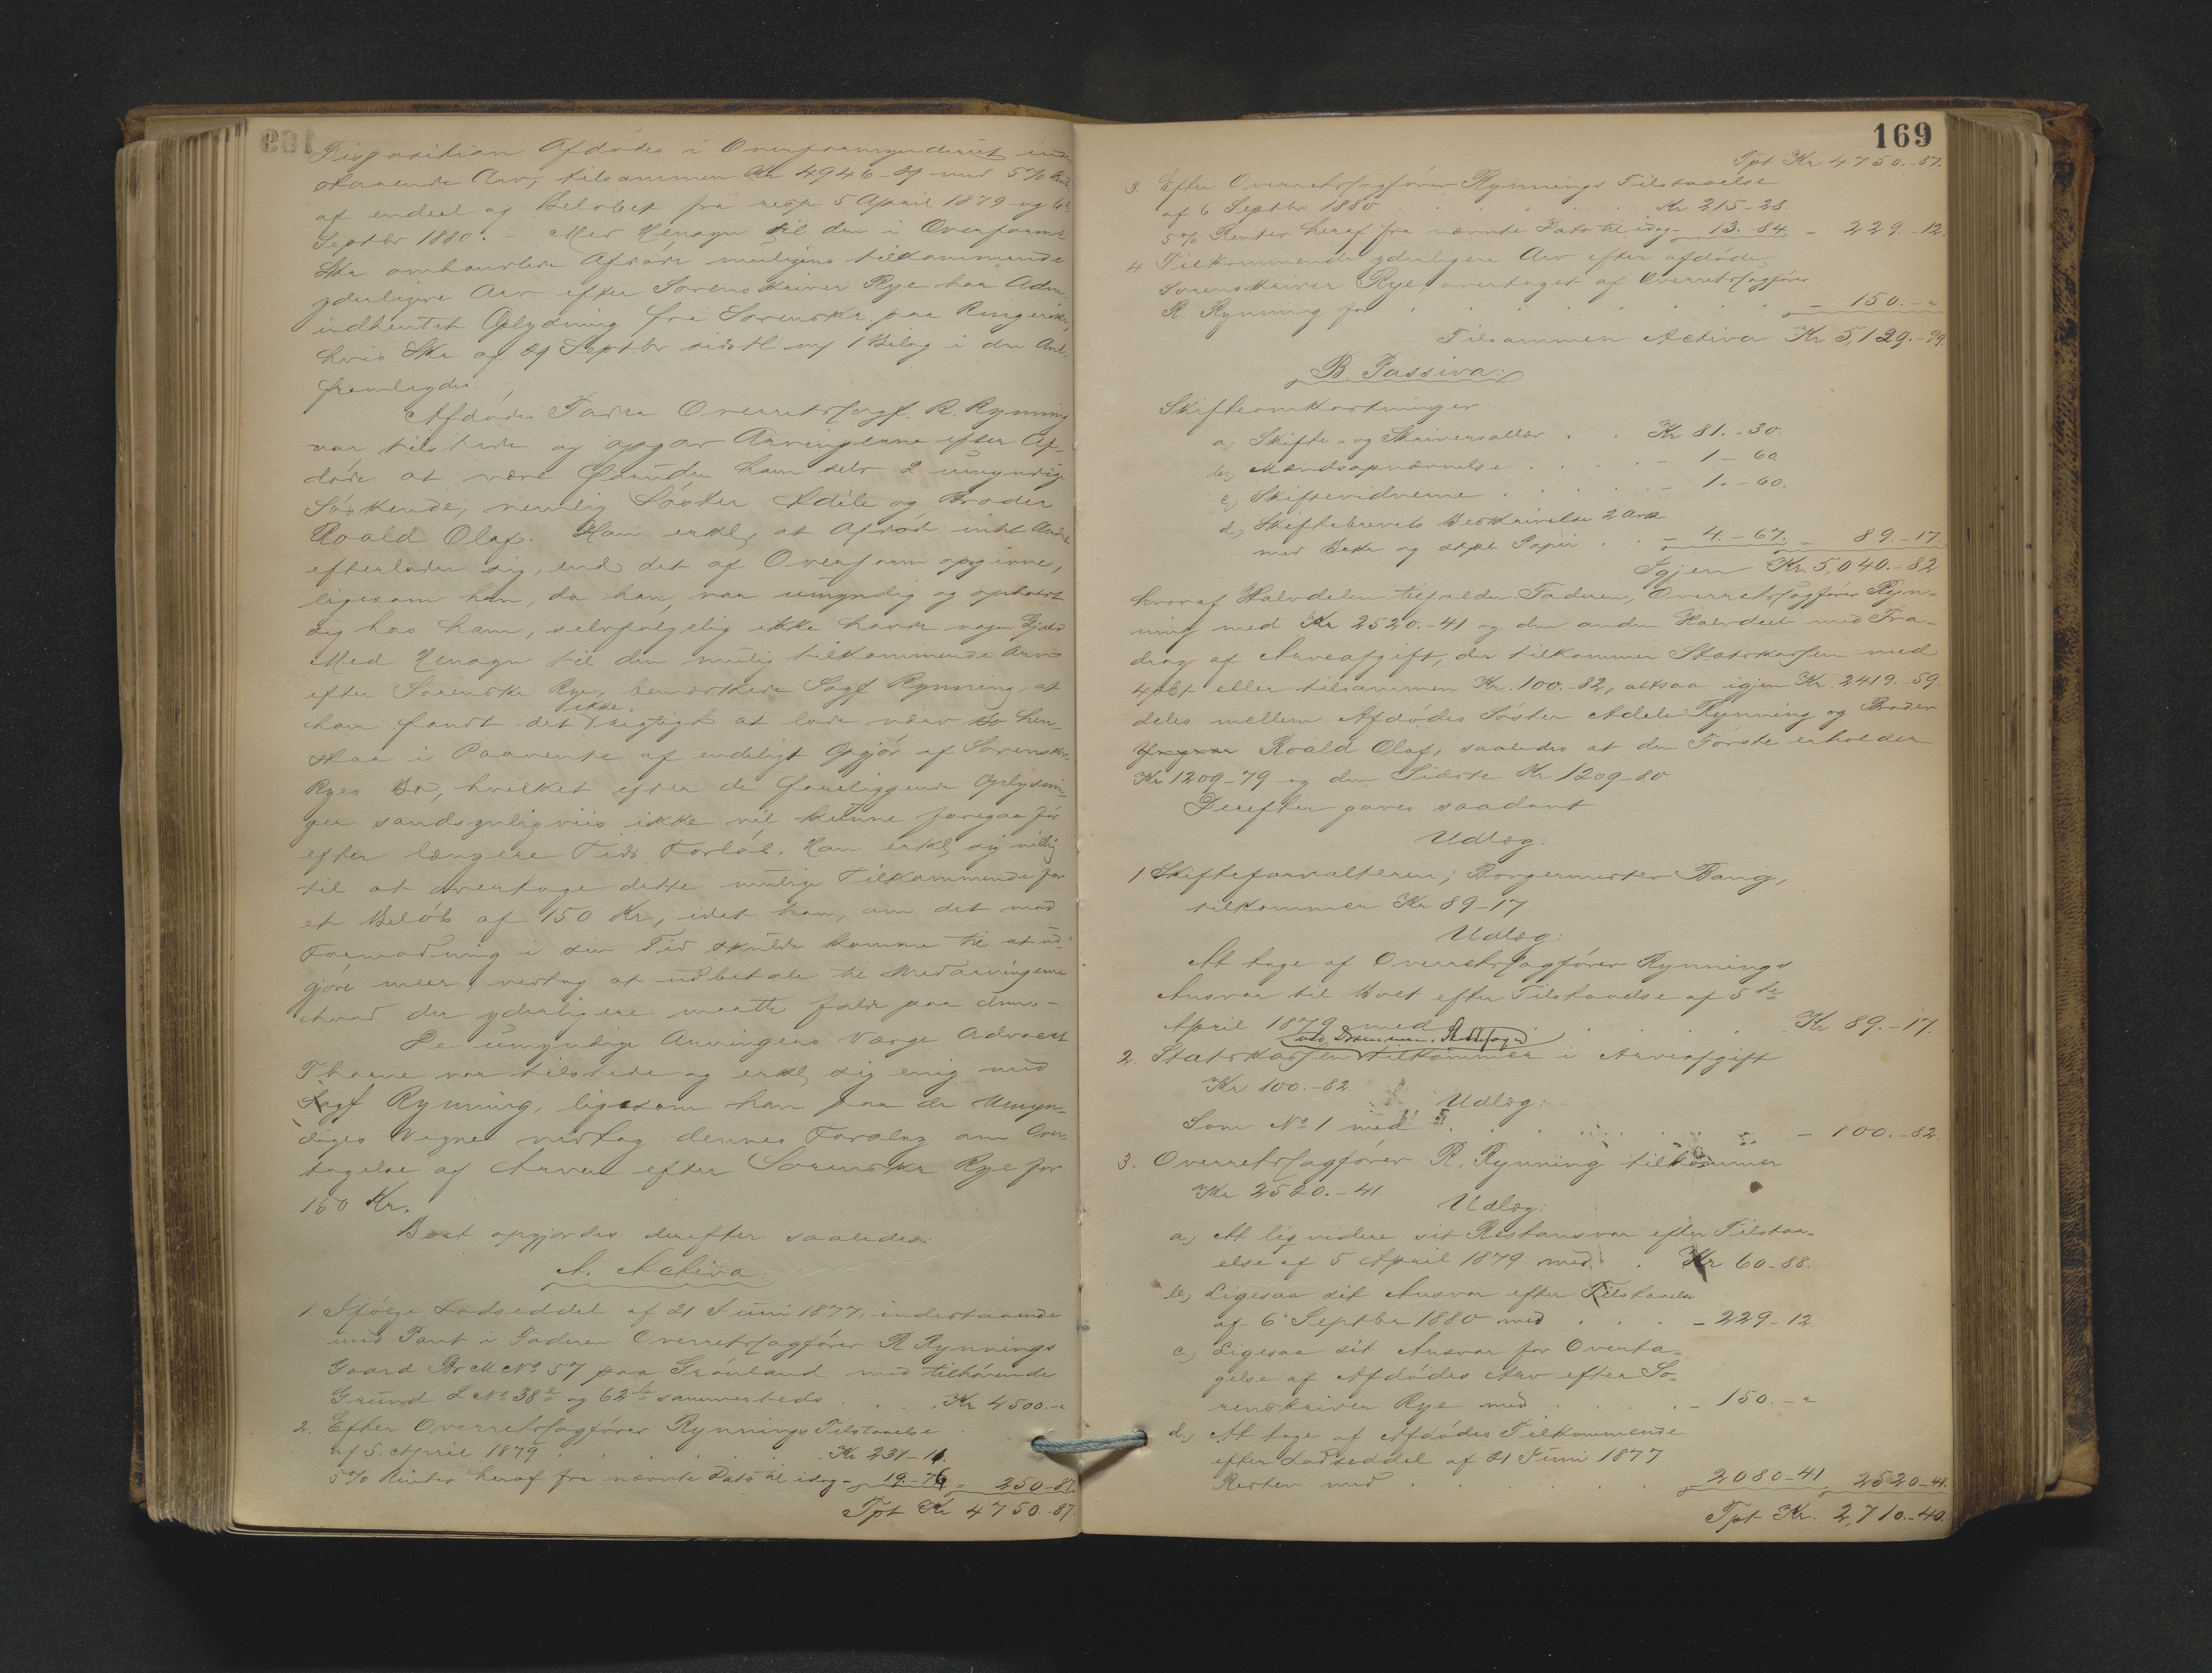 Disposition Afdödes i Overformynderiet inde-
staaende Arv, tilsammen Kr 4946-39 med 5% Rente
af endeel af Beløbet fra resp 5 April 1879 og 6te
Septbr 1880. – Med Hensyn til den i Overform's
Skr omhandlede Afdöde muligens tilkommende
yderligere Arv efter Sorenskriver Rye har Adm.
indhentet Oplysning fra Sorenskr. paa Ringerike,
hvis Skr af 29 Septbr sidstl m/ 1 Bilag i den Anl.
fremlagdes.
Afdödes Fader Overretssagf. R. Rynning
var tilstede og opgav Arvingerne efter Af-
døde at være foruden ham selv 2 umyndige
Söskende, nemlig Söster Adéle og Broder
Roald Olaf. Han erkl, at Afdöde intet Andet
efterlader sig, end det af Overform opgivne,
ligesom han, da han var umyndig og opholdt
sig hos ham, selvfølgelig ikke havde nogen Gjæld
Med Hensyn til den mulig tilkommende Arv
efter Sorenskr Rye, bemærkede Sagf Rynning, at
han fandt det ikke rigtigt at lade nærv Bo hen-
staa i Paavente af endeligt Opgjör af Sorenskr.
Ryes Bo, hvilket efter de foreliggende Oplysnin-
ger sandsynligviis ikke vil kunne foregaa för
efter længere Tids Forløb. Han erkl sig villig
til at overtage dette mulige Tilkommende for
et Beløb af 150 Kr, idet han, om det mod
Formodning i sin Tid skulde komme til at ud-
gjöre meer, vedtog at udbetale til Medarvingerne
hvad der yderligere maatte falde paa dem. –
De umyndige Arvingers Værge Advocat
Thorne var tilstede og erkl sig enig med
Sagf Rynning, ligesom han paa de Umyn-
diges Vegne vedtog dennes Forslag om Over-
tagelse af Arven efter Sorenskr Rye for
150 Kr.
Boet opgjordes derefter saaledes:
A. Activa:
1. Ifölge Lodseddel af 21 Juni 1877, indestaaende
med Pant i Faderen Overretssagförer R Rynnings
Gaard Br M No 57 paa Grönland med tilhörende
Grund L No 38 a og 62 b sammesteds . . . . Kr 4500.-"
2. Efter Overretssagförer Rynnings Tilstaaelse
af 5. April 1879 . . . . . Kr 231-11.
5% Renter heraf fra nævnte Dato til idag - 19.-76 - 250-87.
Tpt Kr 4750.-87.
169
Tpt Kr 4750.-87.
3. Efter Overretssagförer Rynnings Tilstaaelse
af 6 Septbr 1880 . . . . . Kr 215-28.
5% Renter heraf fra nævnte Dato til idag - 13.-84. - 229.-12.
4 Tilkommende yderligere Arv efter afdöde
Sorenskriver Rye, overtaget af Overretssagförer
R. Rynning for . . . . . . . - 150.-"
Tilsammen Activa Kr 5,129.-99
B. Passiva:
Skifteomkostninger:
a, Skifte- og Skriversallær . . Kr 81.-30.
b, Mandsopnævnelse . . . . - 1-60
c, Skiftevidnerne . . . . . - 1.-60.
d, Skiftebrevets Beskrivelse 2 Ark
med Bekr og stpl Papir . . - 4.-67. - 89.-17.
Igjen Kr. 5,040.-82
hvoraf Halvdelen tilfalder Faderen, Overretssagförer Ryn-
ning med Kr 2520.-41 og den anden Halvdeel med Fra-
drag af Arveafgift, der tilkommer Statskassen med
4 pCt eller tilsammen Kr. 100.-82, altsaa igjen Kr. 2419.-59.
deles mellem Afdödes Söster Adele Rynning og Broder
Roald Olaf, saaledes at den Förste erholder
Kr 1209-79 og den Sidste Kr 1209-80.
Derefter gaves saadant
Udlæg:
1 Skifteforvalteren, Borgermester Bang,
tilkommer Kr 89-17
Udlæg:
At tage af Overretssagförer Rynnings
Ansvar til Boet efter Tilstaaelse af 5te
April 1879 med . . . . . . Kr 89.-17.
ved Drammens Stiftsfogd
2. Statskassen tilkommer i Arveafgift
Kr 100.-82.
Udlæg:
Som No 1 med . . . . . . . - 100.-82.
3. Overretssagförer R. Rynning tilkommer
Kr 2520.-41.
Udlæg:
a, At liqvidere sit Restansvar efter Tilstaa-
else af 5 April 1879 med . Kr 60-88.
b, Ligesaa sit Ansvar efter Tilstaaelse
af 6 Septbr 1880 med . . . - 229-12
c, Ligesaa sit Ansvar for Overta-
gelse af Afdödes Arv efter So-
renskriver Rye med . . . . - 150.-"
d, At tage af Afdödes Tilkommende
efter Lodseddel af 21 Juni 1877
Resten med . . . . . . 2080-41. 2520-41.
Tpt Kr. 2,710.-40.